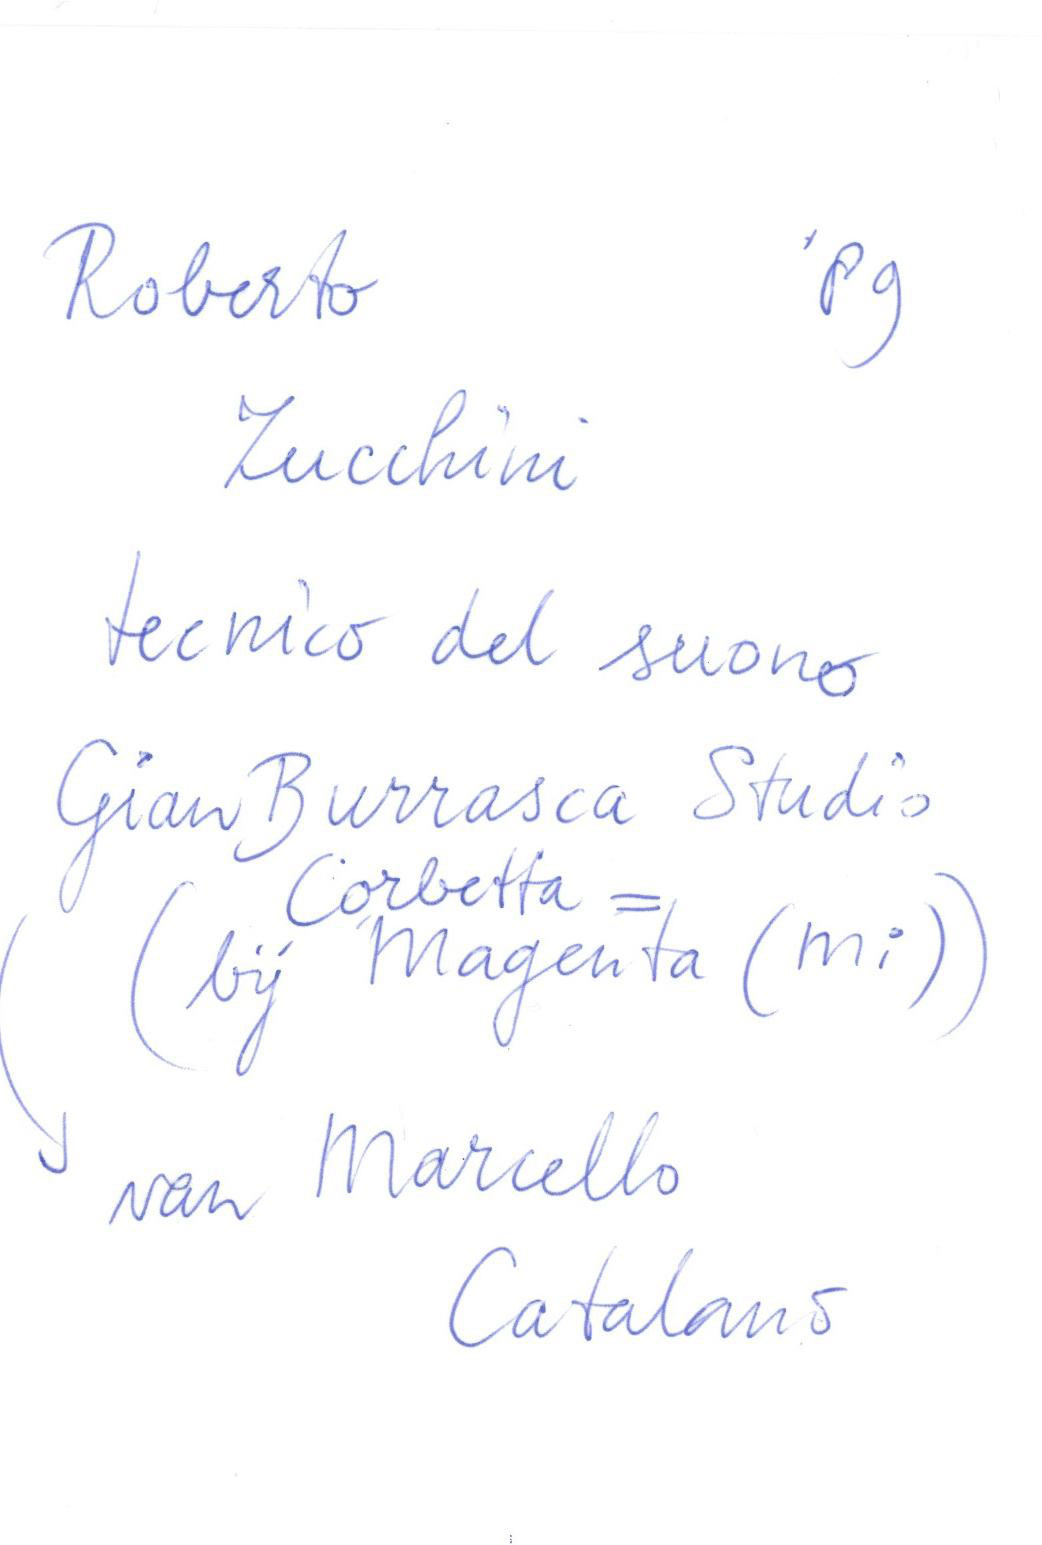 Roberto '89
Zucchini
tecnico del suono
GianBurrasca Studio
Corbetta =
(bij Magenta (Mi))
van Marcello
Catalano